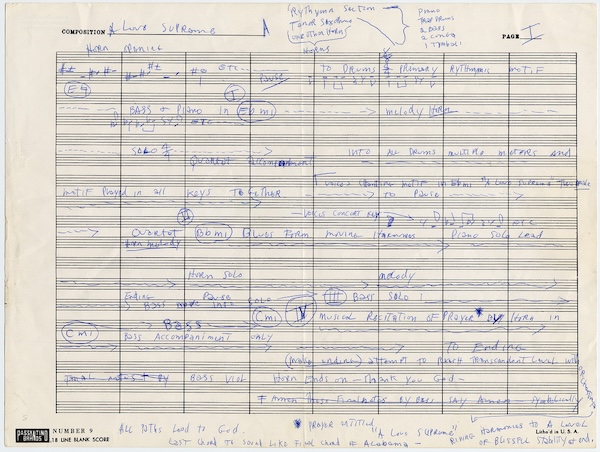 COMPOSITION A Love Supreme
A
Rythymn Section
Tenor Saxophone
one other Horn
Horns
Piano
Trap Drums
2 Bass
2 Conga
1 Tymbali
PAGE I
Horn
etc
Pause
to Drums Primary Rythmic motif
Eb
I
Bass + Piano in Ebmi
melody Horn
etc
Solo 4/4
Quartet accompaniment
INTO ALL Drums multiple meters and
voices chanting motif in Ebmi "A Love Supreme"
motif Played in all Keys Together
to Pause
II
Voices concert key
etc
Quartet Bbmi Blues Form moving Harmonies Piano Solo Lead
Horn melody
Horn Solo
melody
Ending Pause Solo
Bass move into
III Bass Solo
Cmi
IV musical Recitation of Prayer by Horn in
Cmi
Bass
Bass Accompaniment only
To Ending
(make ending) attempt to Reach Transcendent Level with
Final notes by Bass Viol
Horn Ends on - Thank you God -
Amen these Final notes by Bass say Amen - symbolically
PASSANTINO BRANDS
NUMBER 9
18 LINE BLANK SCORE
Litho'd in U.S.A.
All Paths Lead to God.
* Prayer entitled
"A Love Supreme"
Last Chord to Sound Like Final Chord of Alabama -
Rising Harmonies to A Level
of Blissful Stability at end.